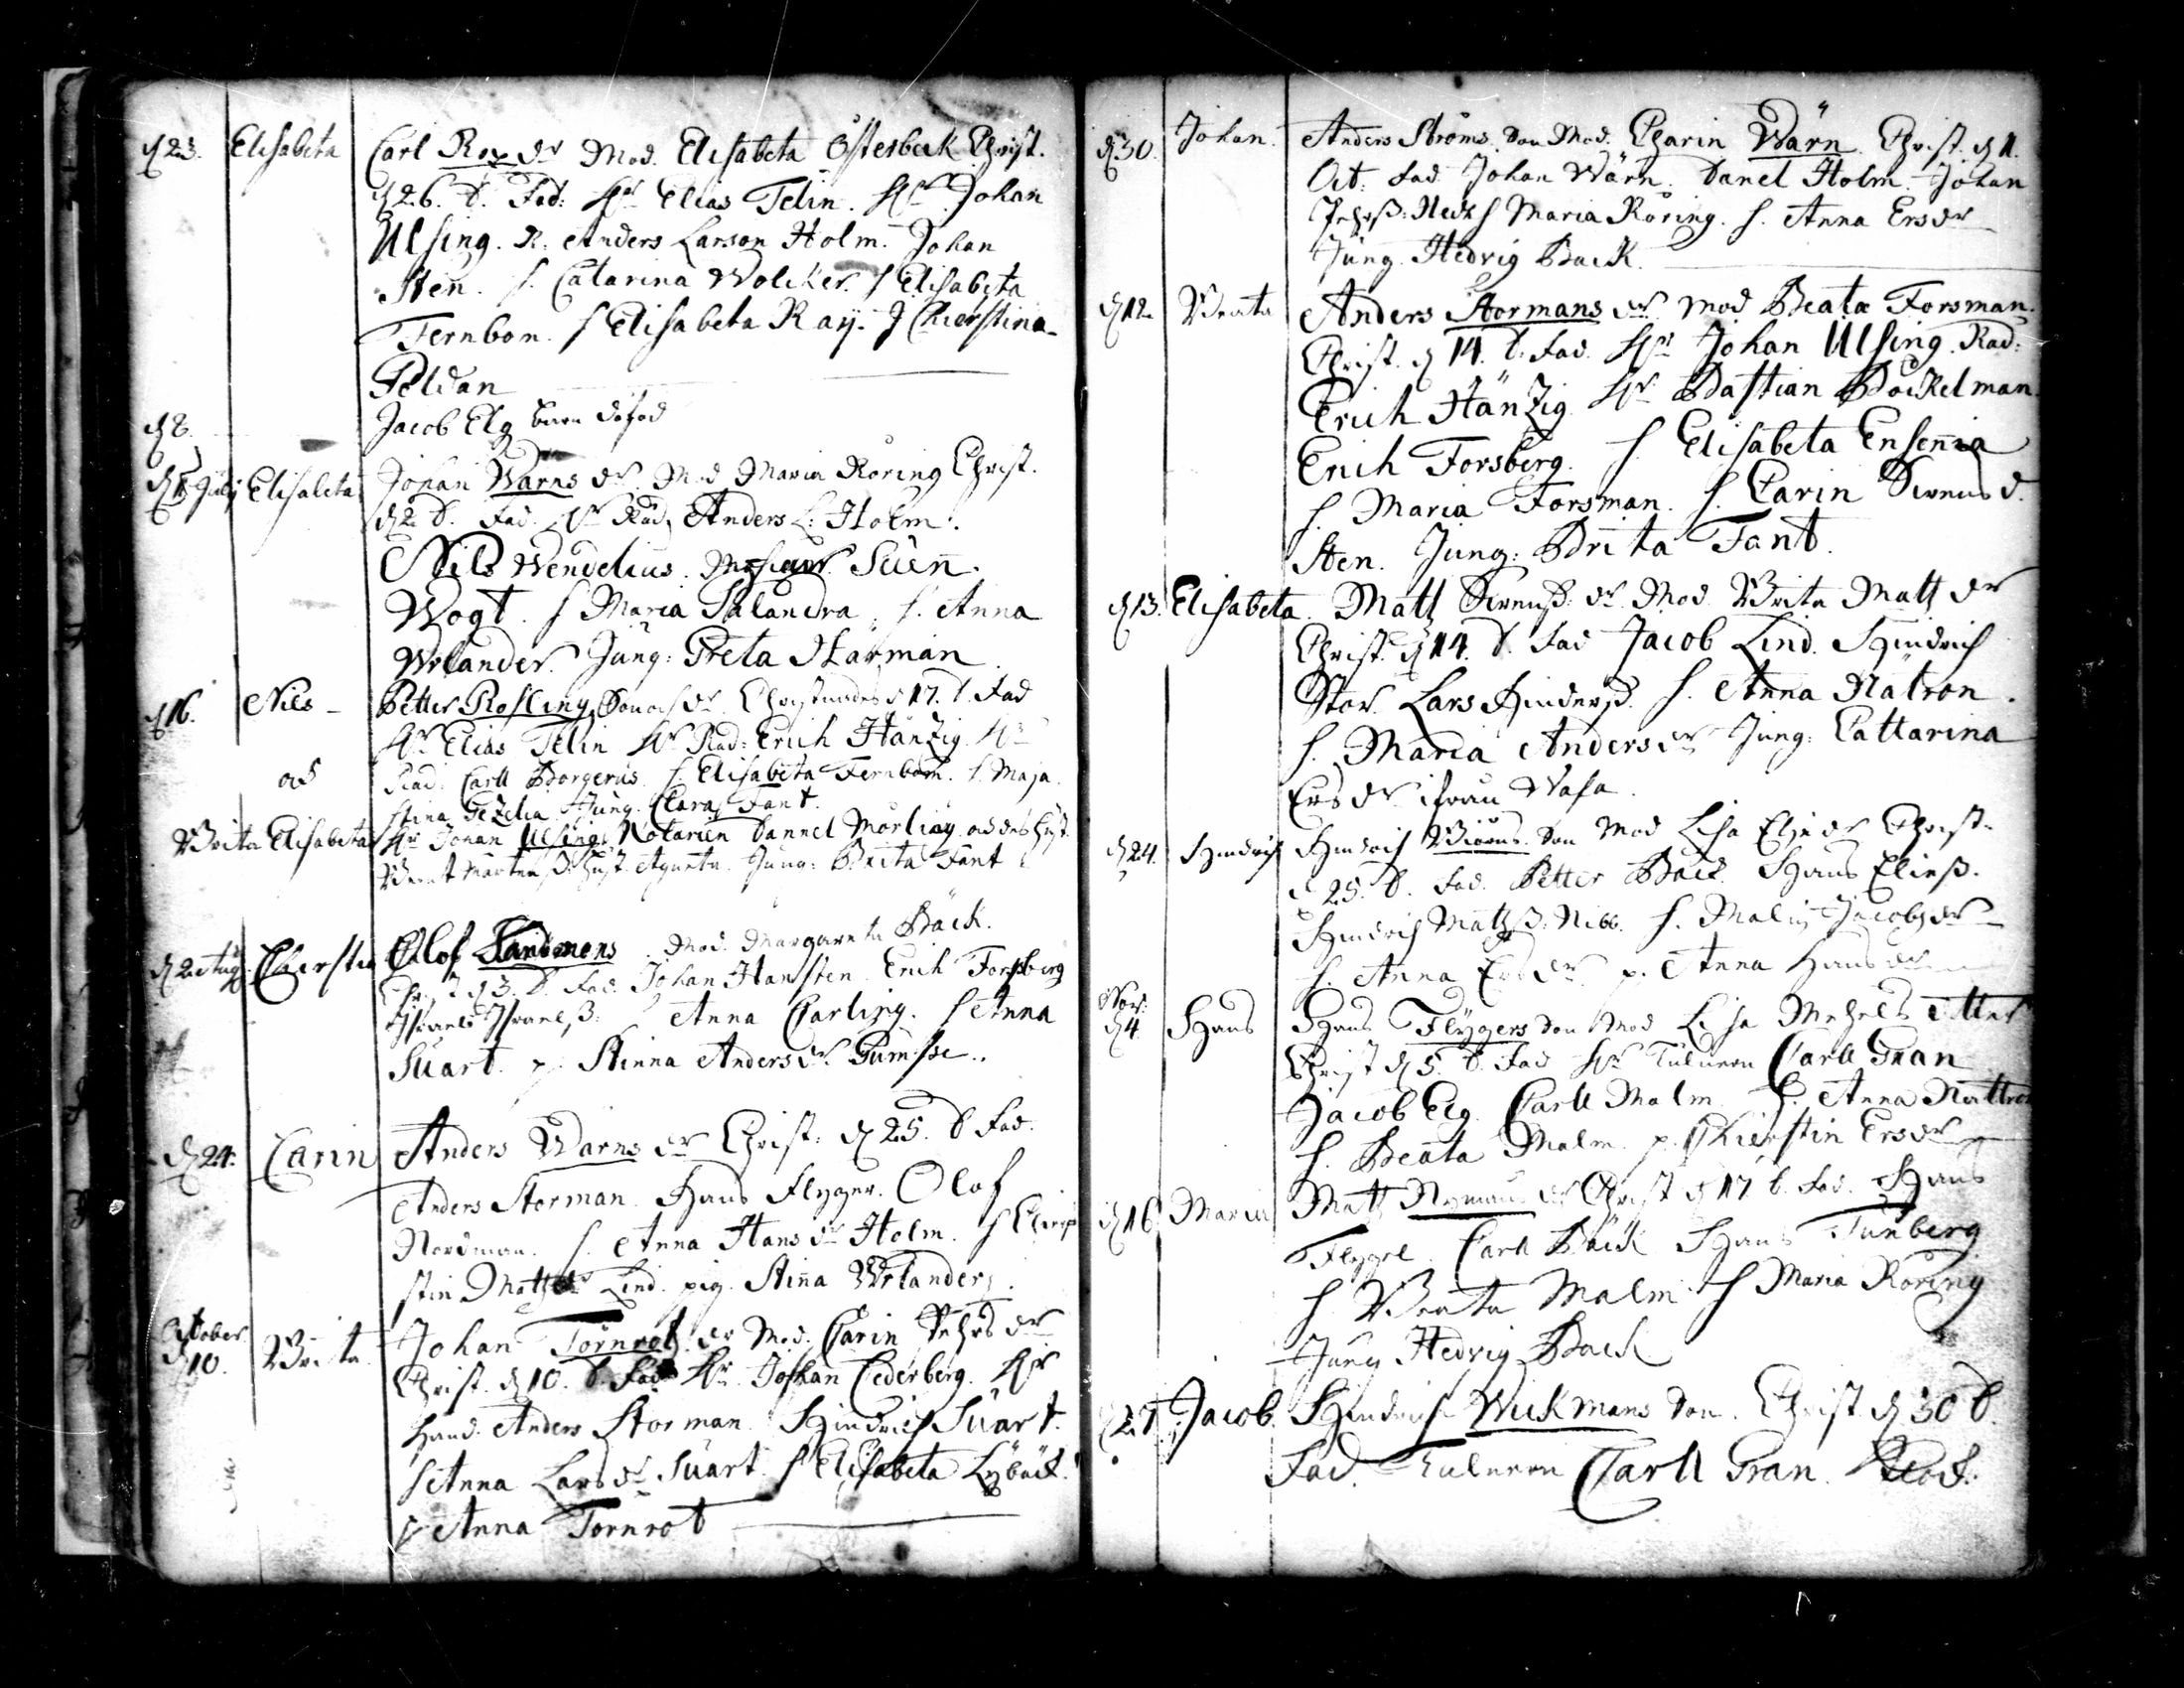 d. 23. Elisabeta Carl Rex dr Mod. Elisabeta Österbeck Christ.
d 26. d. Fad: Hr. Elias Telin. Hr. Johan
Ulfing. R. Anders Larson Holm. Johan
Sten. h. Catarina Wolcker. h Elisabeta
Fernbon. h Elisabeta Raij. J Chierstina
Peldan
d 8. Jacob Elg barn döfod
d 1 Julij Elisabeta Johan Warns dr. Mod Maria Röring Christ.
d 2. d. Fad. Hr Råd. Anders L: Holm.
Nils Wendelius. Suen.
Wogt. h Maria Salandra. h. Anna
Wrlander. Jung: Greta Härman.
d 16. Nils Petter Rosling Christnades d 17. d. Fad
Hr Elias Telin Hr Rad: Erich Hänzig. Hr
Rad. Carll Borgerus. h. Elisabeta Fernbom. h. Maja
ad stina Jung. Clara Fant.
Brita Elisabeta Hr Johan Ulfing, Notarien Dannel Mörling
hust. Agneta. Jung: Brita Fant
d 2 Aug. Chierstin Olof Sandmens Mod. Margareta Bäck.
d 3. d. Fad. Johan Hansten Erich Forsberg
Anna Carling. h Anna
Suart. p. Stinna Andersdr.
d 24. Carin Anders Warns dr Christ: d 25. d Fad.
Anders Storman. Hans Flygger. Olof
Nordman. h. Anna Hansdr Holm. h Chier
stin Matsdr Lind. pig. Stina Wrlander.
October
d 10. Brita Johan Törnrot dr Mod. Carin Pehrsdr
Christ. d 10. d. Fad Hr. Johan Cederberg. Hr
hand. Anders Storman. Hindrich Suart.
h Anna Larsdr Suart. h Elisabeta Lybäck.
p Anna Törnrot
d. 30. Johan Anders Ströms. Son Mod. Charin Wärn. Christ. d 1.
Oct: Fad Johan Wärn. Danel Holm. Johan
h Maria Röring. h. Anna Ersdr
Jung. Hedvig Back.
d 12. Beata Anders Stormans dr. Mod Beata Forsman.
Christ. d 14. d. Fad. Hr Johan Ulfing. Rad:
Erich Hänzig Hr Bastian Böckelman.
Erich Forsberg. h. Elisabeta
h. Maria Forsman. h. Carin
Sten. Jung: Brita Fant.
d 13. Elisabeta. Matts dr. Mod. Brita Mattsdr
Christ. d 14. d. Fad Jacob Lind. Hindrich
Stor. Lars h. Anna Nätron.
h. Maria Andersdr Jung: Cattarina
Ersdr ifrån Wasa.
d 24. Hindrich Hindrich Biörns Son Mod Lisa Christ.
d 25. d. Fad. Petter Back. Hans
Hindrich h. Malin Jacobsdr
h. Anna Ersdr p. Anna Hansdr
Nov:
d 4 Hans Hans Flygers Son Mod Lisa
Christ d 5. d. Fad Hr Tulnern Carll Gran
Jacob Elg. Carll Malm. h. Anna Nättron
h. Beata Malm. p. Chierstin Ersdr
d 16 Maria Matts Nyman dr Christ d 17 d. Fad. Hans
Flygel. Carll Back Hans Tunberg
h. Beata Malm h Maria Röring
Jung Hedvig Back
Jacob. Hindrich Wickmans Son. Christ d 30 d.
Fad. Tulnern Carll Gran.